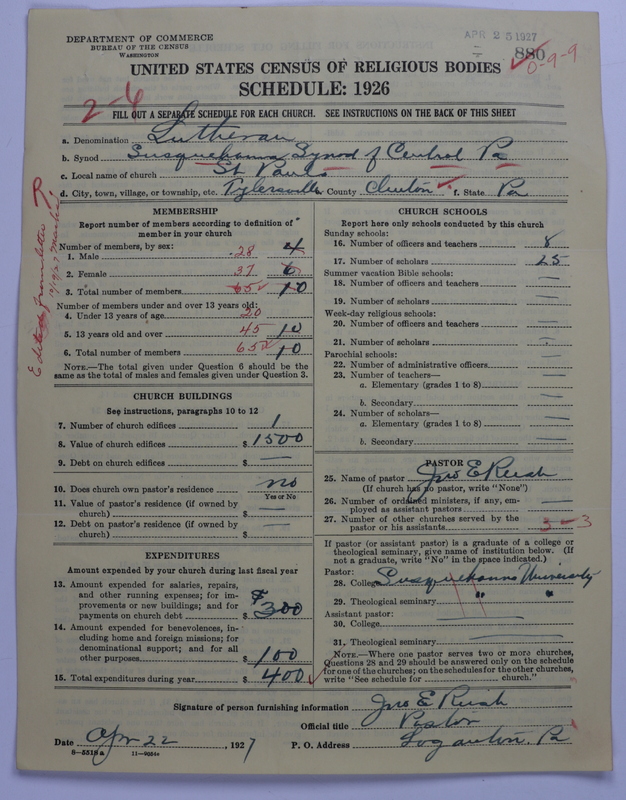 DEPARTMENT OF COMMERCE
BUREAU OF THE CENSUS
WASHINGTON
APR 25 1927
880
0-9-9
UNITED STATES CENSUS OF RELIGIOUS BODIES
SCHEDULE: 1926
2-6
FILL OUT A SEPARATE SCHEDULE FOR EACH CHURCH. SEE INSTRUCTIONS ON THE BACK OF THIS SHEET
a. Denomination Lutheran
b. Synod Susquehanna Synod of Central Pa
c. Local name of church St Pauls
d. City, town, village, or township, etc. Tylersville County Clinton f. State Pa
MEMBERSHIP
Report number of members according to definition of member in your church
Number of members, by sex:
1. Male 28 4
2. Female 37 6
3. Total number of members 65 10
Number of members under and over 13 years old:
4. Under 13 years of age 20
5. 13 years old and over 45 10
6. Total number of members 65 10
NOTE.—The total given under Question 6 should be
same as the total of males and females given under Question 3.
CHURCH BUILDINGS
See instructions, paragraphs 10 to 12
7. Number of church edifices 1
8. Value of church edifices $ 1500
9. Debt on church edifices $ —
10. Does church own pastor's residence no
Yes or No
11. Value of pastor's residence (if owned by
church) $ —
12. Debt on pastor's residence (if owned by
church) $ —
EXPENDITURES
Amount expended by your church during last fiscal year
13. Amount expended for salaries, repairs,
and other running expenses; for im-
provements or new buildings; and for
payments on church debt $ 300
14. Amount expended for benevolences, in-
cluding home and foreign missions; for
denominational support; and for all
other purposes $ 100
15. Total expenditures during year $ 400
CHURCH SCHOOLS
Report here only schools conducted by this church
Sunday schools:
16. Number of officers and teachers 8
17. Number of scholars 25
Summer vacation Bible schools:
18. Number of officers and teachers —
19. Number of scholars —
Week-day religious schools:
20. Number of officers and teachers —
21. Number of scholars —
Parochial schools:
22. Number of administrative officers —
23. Number of teachers—
a. Elementary (grades 1 to 8) —
b. Secondary —
24. Number of scholars—
a. Elementary (grades 1 to 8) —
b. Secondary —
PASTOR
25. Name of pastor Jno E Reish
(If church has no pastor, write "None")
26. Number of ordained ministers, if any, em-
ployed as assistant pastors —
27. Number of other churches served by the
pastor or his assistants 3 3
If pastor (or assistant pastor) is a graduate of a college or
theological seminary, give name of institution below. (If
not a graduate, write "No" in the space indicated.)
Pastor:
28. College Susquehanna University
29. Theological seminary " "
Assistant pastor:
30. College —
31. Theological seminary —
NOTE.—Where one pastor serves two or more churches,
Questions 28 and 29 should be answered only on the schedule
for one of the churches; on the schedules for the other churches,
write "See schedule for church."
Signature of person furnishing information Jno E Reish
Official title Pastor
Date Apr 22, 1927 P. O. Address Loganton. Pa
8—5518a 11—9054a